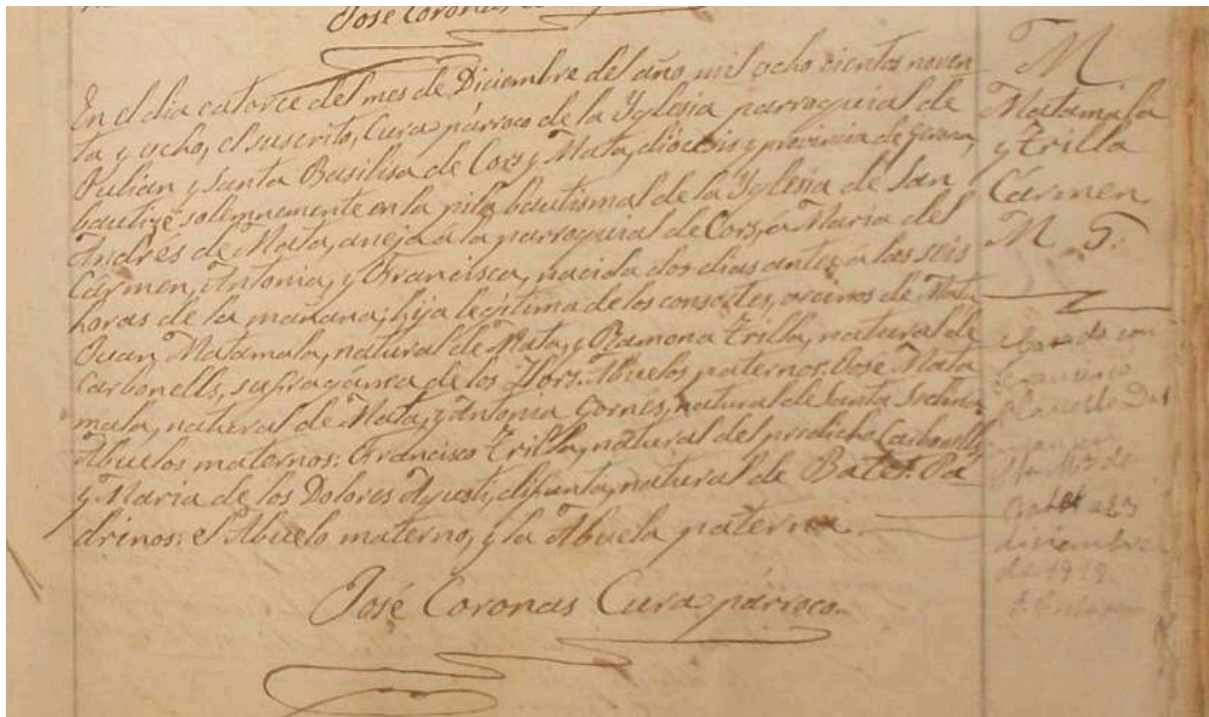 José Coronas
En el dia catorce del mes de Diciembre del año mil ocho cientos noven
ta y ocho, el suscrito, Cura párroco de la Yglesia parroquial de
Julian y Santa Basilisa de Cors y Mata, diócesis y provincia de Gerona,
bautizé solemnemente en la pila bautismal de la Yglesia de San
Andrés de Mata, aneja á la parroquial de Cors, á Maria del
Cármen, Antonia, y Francisca, nacida dos dias antes á las seis
horas de la mañana; hija legítima de los consortes, vecinos de Mata
Juan Matamala, natural de Mata, y Ramona Trilla, natural de
Carbonells, sufragánea de los Hors. Abuelos paternos: José Mata
mala, natural de Mata, y Antonia Gornés, natural de Santa
Abuelos maternos: Francisco Trilla, natural del predicho Carbonells,
y Maria de los Dolores Agusti, difunta, natural de Batet. Pa
drinos: el Abuelo materno, y la Abuela paterna.
José Coronas Cura párroco.
M
Matamala
y Trilla
Cármen
M S.
con
Francisco
de
Batet a 23
diciembre
de 1919.